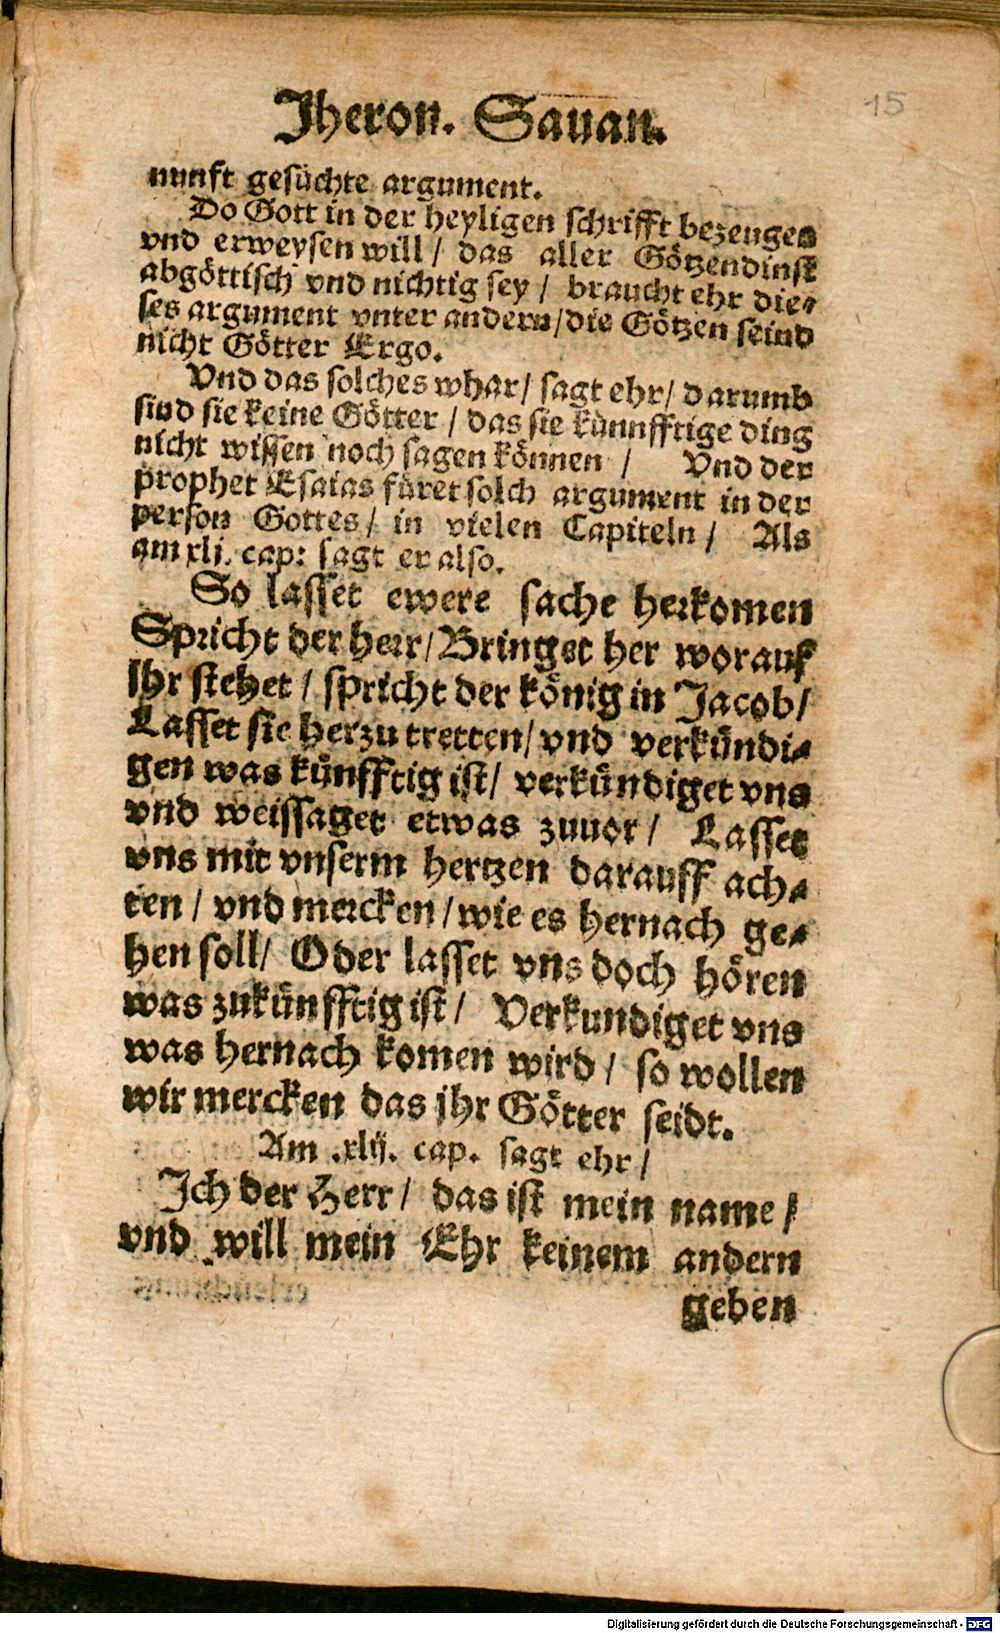 15
Jheron. Sauan.
nunft gesüchte argument.
Do Gott in der heyligen schrifft bezeugen
vnd erweysen will / das aller Götzendinst
abgöttisch vnd nichtig sey / braucht ehr die-
ses argument vnter andern / die Götzen seind
nicht Götter Ergo.
Vnd das solches whar / sagt ehr / darumb
sind sie keine Götter / das sie künnfftige ding
nicht wissen noch sagen können / Vnd der
prophet Esaias füret solch argument in der
person Gottes / in vielen Capiteln / Als
am xlj. cap: sagt er also.
So lasset ewere sache herkomen
Spricht der herr / Bringet her worauf
Ihr stehet / spricht der könig in Jacob /
Lasset sie herzu tretten / vnd verkündi-
gen was künfftig ist / verkündiget vns
vnd weissaget etwas zuuor / Lasset
vns mit vnserm hertzen darauff ach-
ten / vnd mercken / wie es hernach ge-
hen soll / Oder lasset vns doch hören
was zukünfftig ist / Verkundiget vns
was hernach komen wird / so wollen
wir mercken das jhr Götter seidt.
Am .xlij. cap. sagt ehr /
Ich der Herr / das ist mein name /
vnd will mein Ehr keinem andern
geben
Digitalisierung gefördert durch die Deutsche Forschungsgemeinschaft - DFG